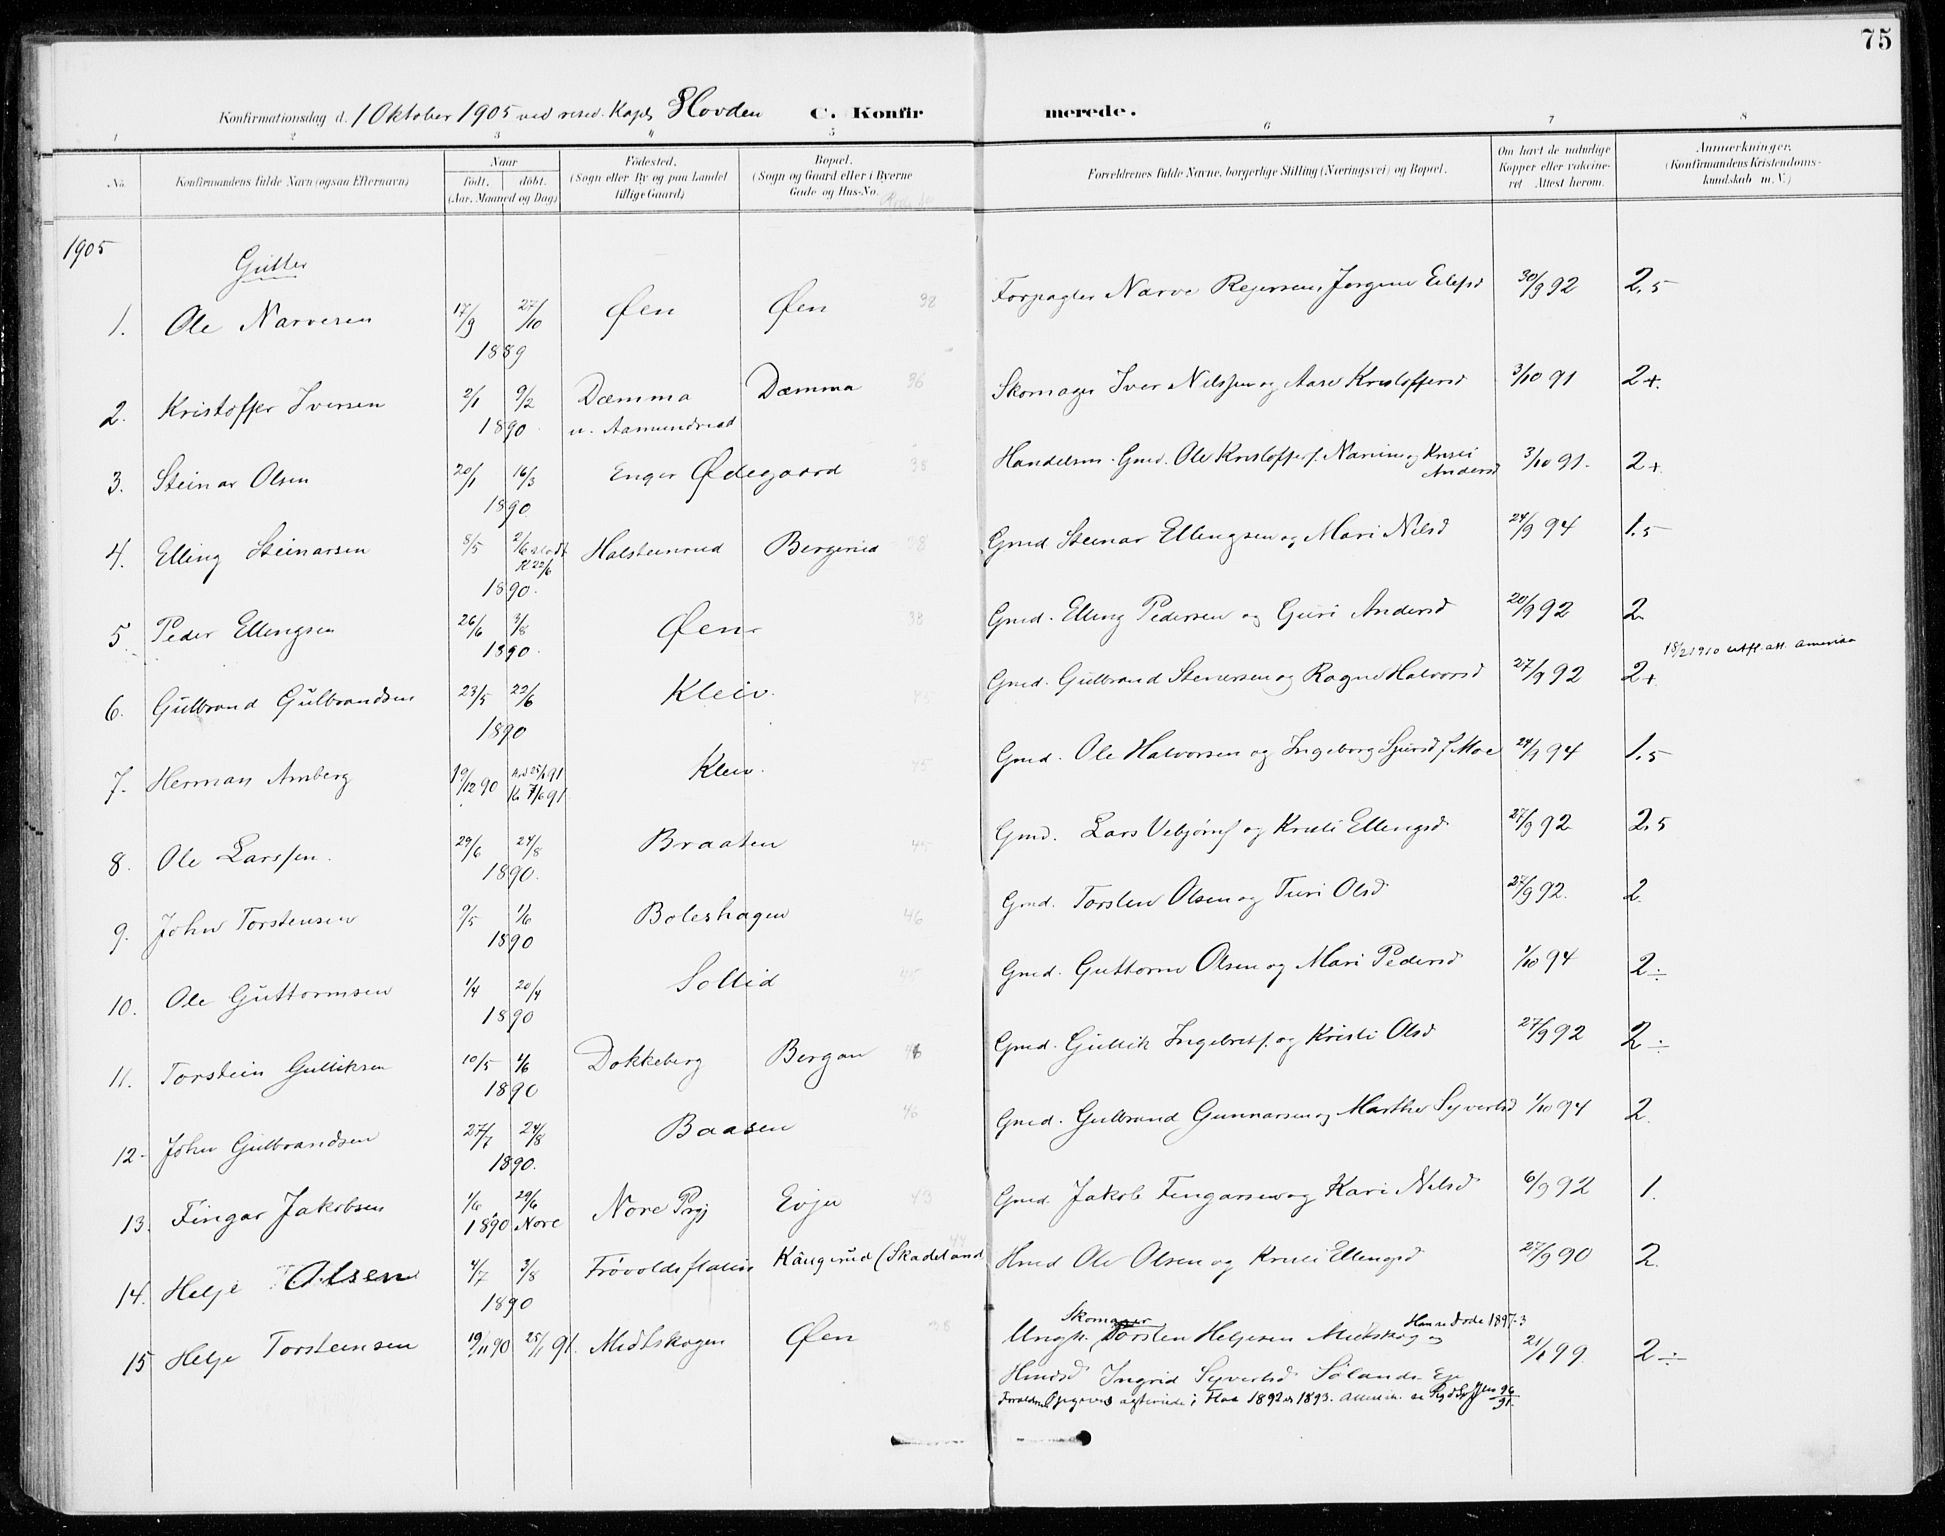 75
Konfirmationsdag d. 1 Oktober 1905 ved resid. Kap. Hovden C. Konfirmerede.
1 2 3 4 5 6 7 8
No. Konfirmandens fulde Navn (ogsaa Efternavn) Naar født. døbt. (Aar, Maaned og Dag) Fødested. (Sogn eller By og paa Landet tillige Gaard) Bopæl. (Sogn og Gaard eller i Byerne Gade og Hus-No. Forældrenes fulde Navne, borgerlige Stilling (Næringsvei) og Bopæl. Om havt de naturlige Kopper eller vakcineret Attest herom. Anmærkninger. (Konfirmandens Kristendomskundskab m. V.)
1905
Gutter
1. Ole Narvesen 17/9 27/10 1889 Øen Øen 38 Forpagter Narve Reiersen, Jørgine Eilefsd 30/9 92 2.5
2. Kristoffer Iversen 2/1 9/2 1890 Dæmma u. Aamundrud Dæmma 36 Skomager Iver Nilssen og Aase Kristoffersd 3/10 91 2+.
3. Steinar Olsen 20/1 16/3 1890 Enger Ødegaard 38 Handelsm. Gmd. Ole Kristoffers. Narum og Kristi Andersd 3/10 91. 2+
4. Elling Steinarsen 8/5 2/6 K 22/6 1890. Halsteinrud Bergerud 38 Gmd Steinar Ellingsen og Mari Nilsd 24/9 94 1.5
5 Peder Ellingsen 26/6 3/8 1890. Øen 38 Gmd. Elling Pedersen og Guri Andersd 20/9 92 2
6. Gulbrand Gulbrandsen 23/5 22/6 1890 Kleiv. 45 Gmd. Gulbrand Stenersen og Ragne Halvorsd 27/9 92 2+ 18/2 1910 utfl. att. Amerika
7. Herman Amberg 19/12 90 91 K. 7/6 91 Kleiv. 45 Gmd. Ole Halvorsen og Ingeborg Sjursd f. Moe 24/9 94 1.5
8. Ole Larssen. 29/6 24/8 1890. Braaten 45 Gmd. Lars Vebjørns og Kristi Ellingsd. 27/9 92 2.5
9. John Torstensen 9/5 1/6 1890 Boleshagen 46 Gmd. Torsten Olsen og Turi Olsd 27/9 92. 2.
10. Ole Guttormsen 1/4 20/4 1890 Sollid 45 Gmd. Guttorm Olsen og Mari Pedersd 1/10 94 2÷
11. Torstein Gulliksen 10/5 1/6 1890 Dokkeberg Bergan 46 Gmd. Gullik Ingebrets. og Kristi Olsd 27/9 92 2÷
12. John Gulbrandsen 27/7 24/8 1890. Baasen 46 Gmd. Gulbrand Gunnarsen og Marthe Syvertsd 1/10 94 2.
13. Fingar Jakobsen 1/6 29/6 1890 Nore Nore Prgj Evju 43 Gmd. Jakob Fingarsen og Kari Nilsd 6/9 92 1.
14. Helje Olsen 4/7 3/8 1890 Frøvoldsflaten Kaugerud (Skadeland 44 Hmd Ole Olsen og Kristi Ellingsd 27/9 90 2.
15 Helje Torsteinsen 19/11 90 25/1 91. Midtskogen Øen 38 Ungk. Skomager Torsten Heljesen Midtskog og Han er død 1897. 3
Hmdsd Ingrid Syvertsd Søland 21/1 99. 2÷
i Flaa 1892 1893.